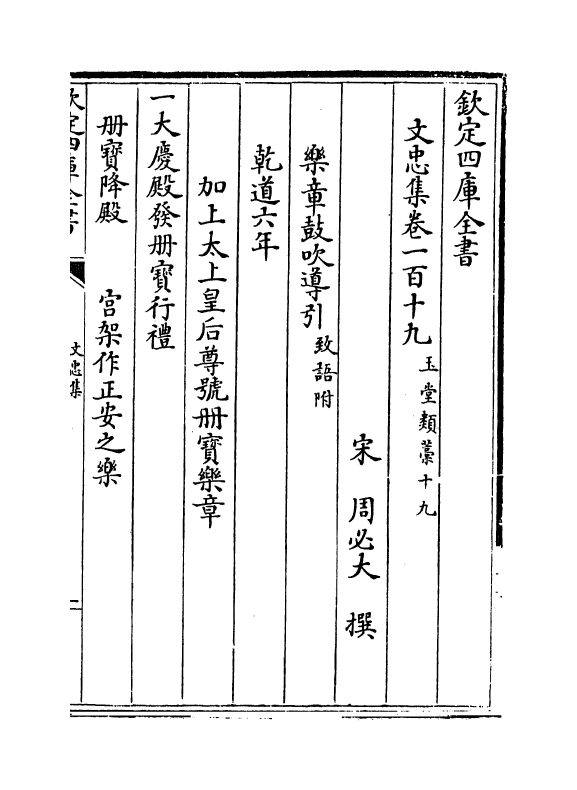 欽定四庫全書
文忠集卷一百十九 玉堂類藁十九
宋 周必大 撰
樂章鼓吹導引 致語附
乾道六年
加上太上皇后尊號册寶樂章
一大慶殿發册寶行禮
册寶降殿 宫架作正安之樂
欽定四庫全書
文忠集